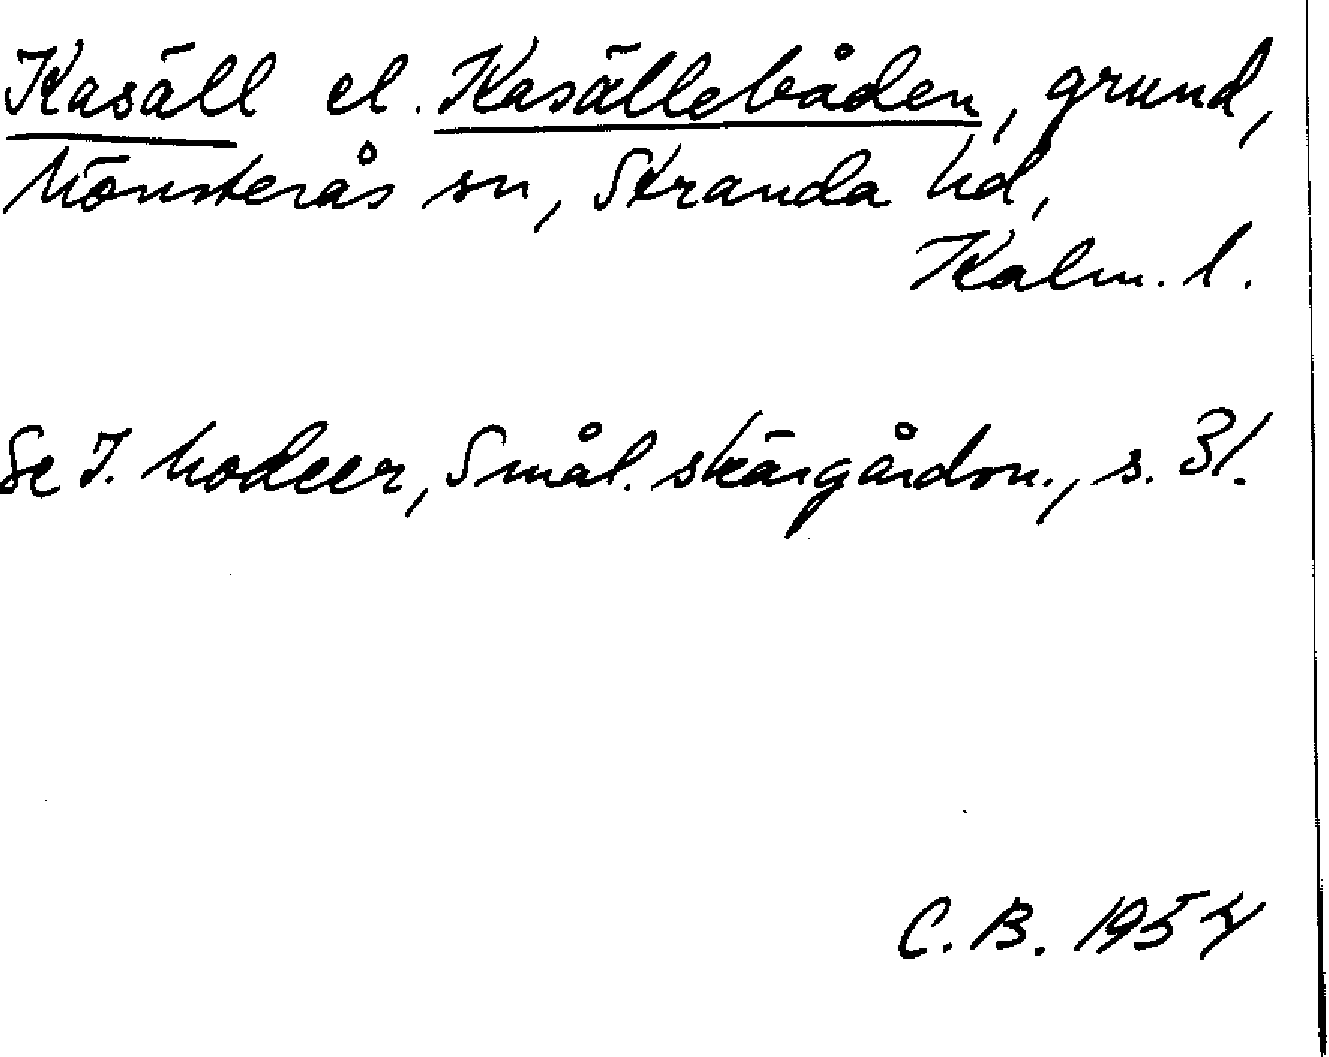 Kasäll el. Kasällebåden, grund,
Mönsterås sn, Stranda hd,
Kalm. l.
Se I. Modeer, Smål. skärgårdsn., s. 31.
C. B. 1954